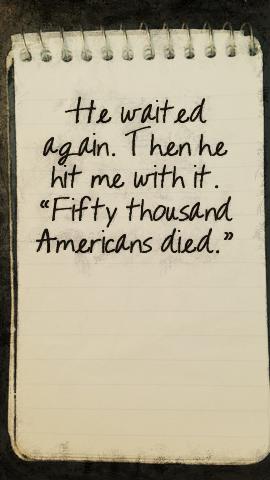 He waited
again. Then he
hit me with it.
“Fifty thousand
Americans died.”